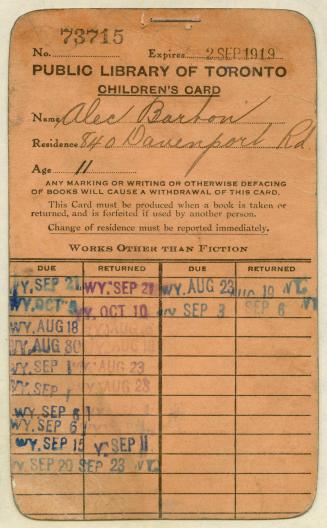 No. 73715 Expires 2 SEP 1919
PUBLIC LIBRARY OF TORONTO
CHILDREN'S CARD
Name Alec Barton
Residence 840 Davenport Rd
Age 11
ANY MARKING OR WRITING OR OTHERWISE DEFACING
OF BOOKS WILL CAUSE A WITHDRAWAL OF THIS CARD.
This Card must be produced when a book is taken or
returned, and is forfeited if used by another person.
Change of residence must be reported immediately.
WORKS OTHER THAN FICTION
DUE RETURNED DUE RETURNED
WY. SEP 21 WY. SEP 21 WY. AUG 23 AUG 19 WY.
WY. OCT WY. OCT 10 WY. SEP 3 SEP 6 WY.
WY. AUG 18 WY. AUG
WY. AUG 30 WY. AUG
WY. SEP 1 WY. AUG 23
WY. SEP 1 WY. AUG 23
WY. SEP 6
WY. SEP 6
WY. SEP 15 WY. SEP 11
WY. SEP 20 SEP 23 WY.